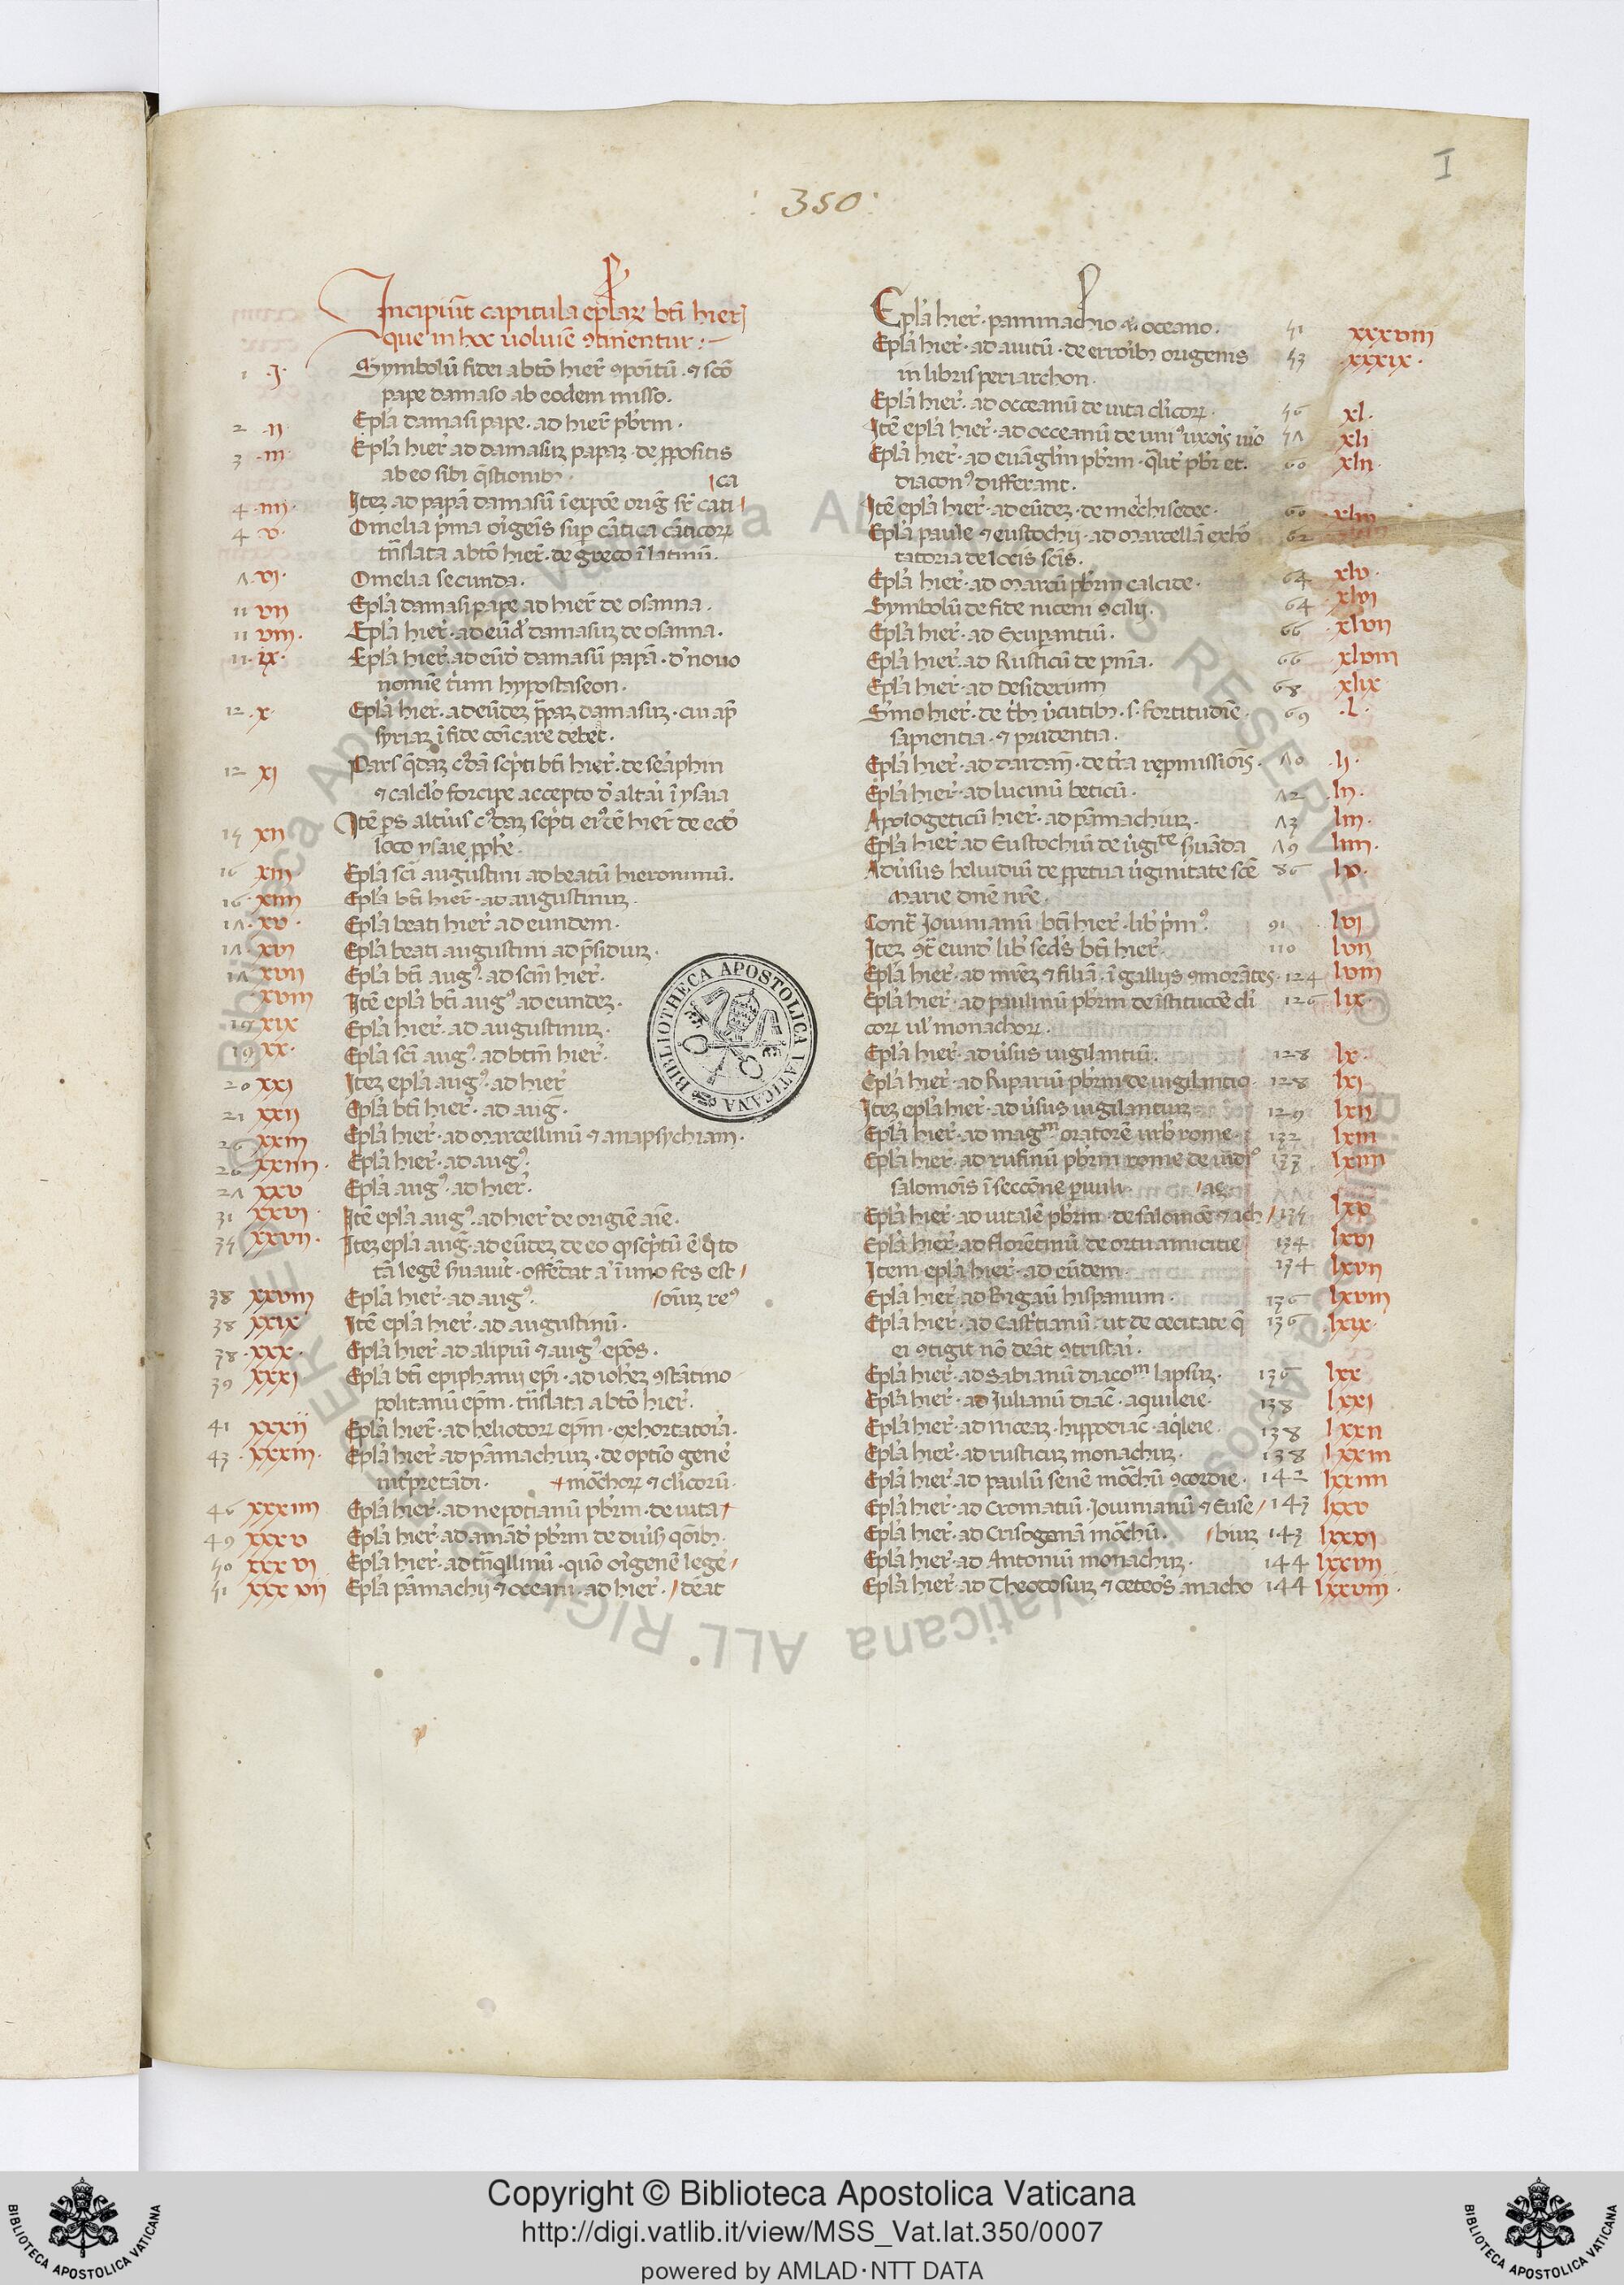 I
: 350 :
Incipiūt capitula eplaꝝ bti hier̄
que in hoc uolumīe ꝯtinentur :~
1 .I. Symbolū fidei a btō hier̄ ꝯpoitū . ⁊ scō
pape damaso ab eodem misso.
2 .II Epla damasi pape . ad hier̄ pbrm .
3 .III. Epla hier̄ ad damasuꝫ papaꝫ . de ꝓpositis
ab eo sibi q̄stionibꝫ . /ca
4 .IIII. Iteꝫ ad papā damasū ī expōe oriḡ sr̄ cāti/
4 .V. Omelia pͥma orͥgeīs suꝑ cātica cāticoꝝ
tn̄slata a btō hier̄ . de greco ī latinū.
7 .VI. Omelia secunda .
11 VII Epla damasi pape ad hier̄ de osanna .
11 VIII. Epla hier̄ . ad eūd̄ damasuꝫ de osanna .
11 .IX. Epla hier̄ . ad eūd̄ damasū papā . d̄ nouo
nomīe trium hypostaseon.
12 .X. Epla hier̄ . ad eūdeꝫ p̄paꝫ damasuꝫ . cui ap̄
syriaꝫ ī fide cōīcare debeat .
12 XI Pars q̄daꝫ cͥdā scͥpti bti hier̄ . de seraphin
⁊ calclo forcipe accepto d̄ altari ī ysaia
15 XII Itē ps altius cͥdaꝫ scͥpti eiͥdē hier̄ de eod̄
loco ysaie ꝓphē .
16 XIII Epla sci augustini ad beatū hieronimū.
16 . XIIII Epla bti hier̄ . ad augustinuꝫ .
17 . XV . Epla beati hier̄ ad eundem .
17 . XVI Epla beati augustini ad p̄siduꝫ .
17 XVII Epla bti augꝰ . ad scm̄ hier̄ .
XVIII Itē epla bti augꝰ ad eundeꝫ .
19 XIX Epla hier̄ . ad augustinuꝫ .
19 XX. Epla sci augꝰ . ad btm̄ hier̄ .
20 XXI Iteꝫ epla augꝰ . ad hier̄
21 XXII Epla bti hier̄ . ad auḡ .
26 XXIII Epla hier̄ . ad Marcellinū ⁊ anapsychiam .
26 XXIIII . Epla hier̄ . ad augꝰ.
27 XXV Epla augꝰ . ad hier̄ .
31 XXVI Itē epla augꝰ . ad hier̄ de origīe aīe .
35 XXVII . Iteꝫ epla auḡ . ad eūdeꝫ de eo ꝙ scͥptū ē qͥ to
tā legē suauit̄ . offēdat aͧ ī uno fcs est /
38 XXVIII Epla hier̄ . ad augꝰ . /oīuꝫ reꝰ
38 XXIX Itē epla hier̄ . ad augustinū .
38 . XXX . Epla hier̄ ad alipiū ⁊ augꝰ epos .
39 XXXI Epla bti epiphanii epi . ad iohēꝫ ꝯstātino
politanū epm̄ . tn̄slata a btō hier̄ .
41 XXXII Epla hier̄ . ad heliodoꝝ epm̄ . exhortatoria .
43 . XXXIII . Epla hier̄ ad pāmachiuꝫ . de optīo genē
int̄pretādi . + mōchoꝝ ⁊ clͥicorū .
46 XXXIIII Epla hier̄ . ad nepotianū pbrm . de uita +
49 XXXV Epla hier̄ . ad amād̄ pbrm de diuis̄ qōibꝫ .
50 XXXVI Epla hier̄ . ad tn̄qllinū . quō orͥgenē legē /
51 XXXVII Epla pāmachij ⁊ oceani . ad hier̄ . /beat
Epla hier̄ . pammachio ⁊ oceano . 51 XXXVIII
Epla hier̄ . ad auitū . de erroribꝫ origenis 53 .XXXIX .
in libris periarchon .
Epla hier̄ . ad occeanū de uita clͥicoꝝ . 56 XL .
Itē epla hier̄ . ad occeanū de uniͥ uxoris uiro 57 XLI
Epla hier̄ . ad euāglm pbrm . q̄lit̄ pbr et . 60 XLII
diaconꝰ differant .
Itē epla hier̄ . ad eūdeꝫ . de melchisedec . 60 . XLIII
Epla paule ⁊ eustochij . ad Marcellā exho 62
tatoria de locis scis .
Epla hier̄ . ad Marcū pbrm calcide . 64 XLV .
Symbolū de fide niceni ꝯcilij . 64 . XLVI
Epla hier̄ . ad Exuꝑantiū . 66 . XLVII
Epla hier̄ . ad Rusticū de pnia . 66 XLVIII
Epla hier̄ . ad Desiderium 68 . XLIX
Sͥmo hier̄ . de tͥbꝫ uͥtutibꝫ . s . fortitudīe . 69 . L .
sapientia . ⁊ prudentia .
Epla hier̄ . ad dardan̄ . de tͥra repmissiois . 70 . LI .
Epla hier̄ . ad lucinū beticū . 72 . LII .
Apologeticū hier̄ . ad pāmachiuꝫ . 73 LIII .
Epla hier̄ ad Eustochiū de uͥgite suāda 79 LIIII .
Aduͥsus heluidiū de ꝑpetua uͥginitate scē 86 LV .
Marie dnē nrē .
Contͣ Iouinianū . bti hier̄ . lib̄ pͥmꝰ . 91 . LVI
Iteꝫ ꝯtͣ eund̄ lib̄ scds bti hier̄ . 110 . LVII
Epla hier̄ . ad mrēꝫ ⁊ filiā . ī gallijs ꝯmorātes . 124 LVIII
Epla hier̄ . ad paulinū pbrm de īstitucōe cli 126 LIX .
coꝝ ul̄ monachoꝝ .
Epla hier̄ . aduͥsus uigilantiū . 128 LX .
Epla hier̄ . ad Ripariū pbrm de uigilantio . 128 LXI
Iteꝫ epla hier̄ . aduͥsus uigilantiuꝫ 129 LXII
Epla hier̄ . ad magm oratorē urb̄ rome . 132 LXIII
Epla hier̄ . ad rufinū pbrm rome de iudiͦ 133 LXIIII
salomōis ī seccōne ꝑuuli . /aꝫ
Epla hier̄ . ad uitalē pbrm . de salomōe ⁊ ach / 134 LXV
Epla hier̄ . ad florētinū de ortu amicitie 134 LXVI
Item . epla hier̄ . ad eūdem . 134 LXVII
Epla hier̄ . ad Abigaū hispanum . 136 LXVIII
Epla hier̄ . ad Castͥtianū . ut de cecitate q̄ 136 . LXIX .
ei ꝯtigit nō deāt ꝯtristari .
Epla hier̄ . ad Sabianū diacom lapsuꝫ . 136 LXX
Epla hier̄ . ad Iulianū diac̄ . aquileie . 138 LXXI
Epla hier̄ . ad Niceaꝫ . hippodiac̄ . aqͥleie . 138 LXXII
Epla hier̄ . ad rusticuꝫ monachuꝫ . 138 LXXIII
Epla hier̄ ad paulū senē mōchū ꝯcordie . 142 LXXIIII
Epla hier̄ . ad Cromatiū . Iouinianū ⁊ Euse / 143 LXXV
Epla hier̄ . ad Crisogonā mōchū . /biuꝫ 143 LXXVI
Epla hier̄ . ad Antoniū monachuꝫ . 144 LXXVII
Epla hier̄ . ad Theodosiuꝫ ⁊ ceteos anacho 144 LXXVIII .
BIBLIOTHECA APOSTOLICA VATICANA
Copyright © Biblioteca Apostolica Vaticana
http://digi.vatlib.it/view/MSS_Vat.lat.350/0007
powered by AMLAD·NTT DATA
BIBLIOTECA APOSTOLICA VATICANA
BIBLIOTECA APOSTOLICA VATICANA